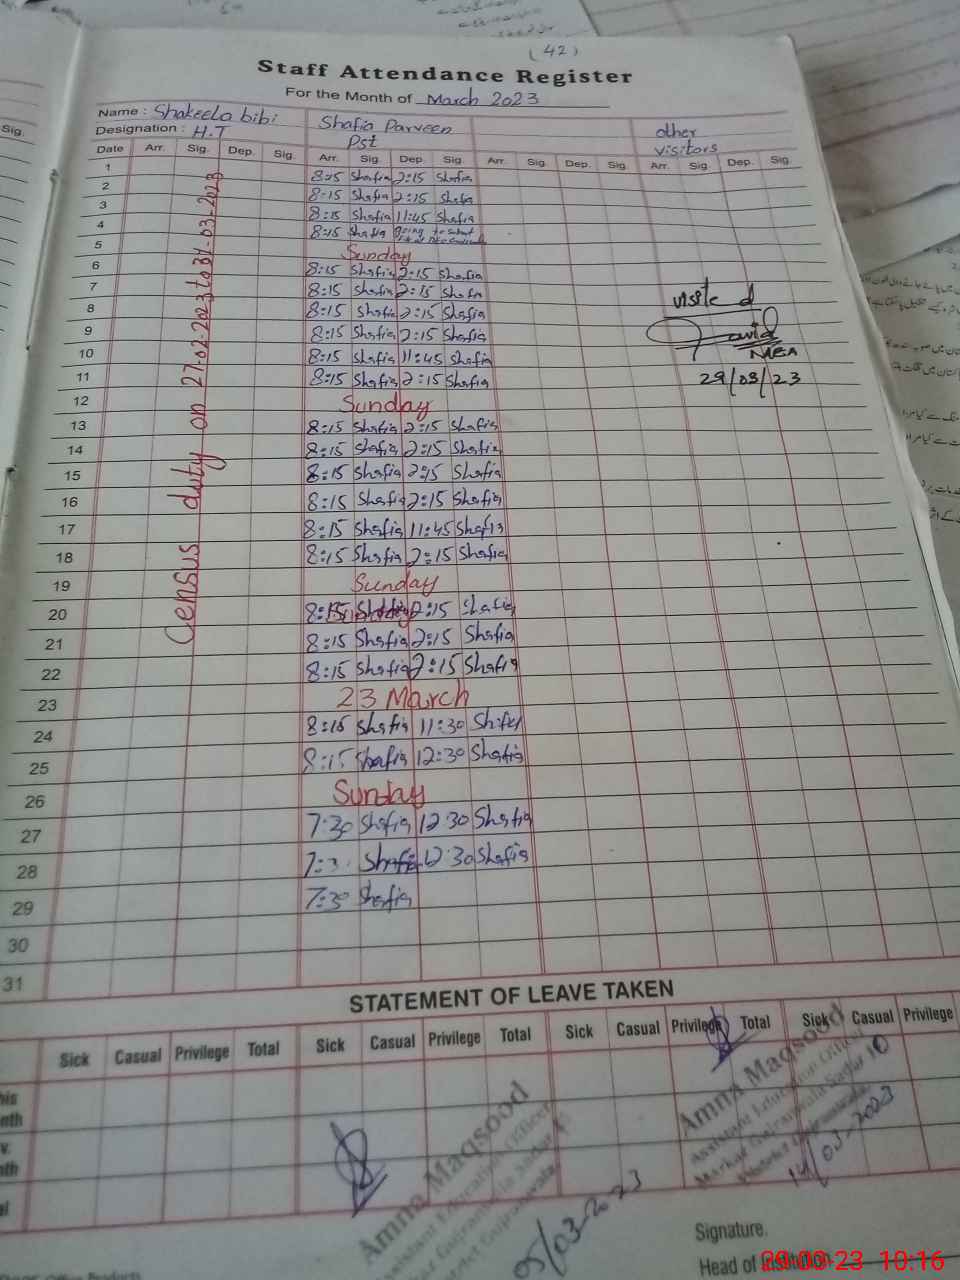 (42)
Staff Attendance Register
For the Month of March 2023
Name : Shakeela bibi Shafia Parveen other
Designation : H.T Pst visitors
Date Arr. Sig. Dep. Sig. Arr. Sig. Dep. Sig. Arr. Sig. Dep. Sig. Arr. Sig. Dep. Sig.
Census duty on 27-02-2023 to 31-03-2023
1 8:15 Shafia 2:15 Shafia
2 8:15 Shafia 2:15 Shafia
3 8:15 Shafia 11:45 Shafia
4 8:15 Shafia going to submit
5 Sunday
6 8:15 Shafia 2:15 Shafia
7 8:15 Shafia 2:15 Shafia
8 8:15 Shafia 2:15 Shafia
9 8:15 Shafia 2:15 Shafia
10 8:15 Shafia 11:45 Shafia
11 8:15 Shafia 2:15 Shafia
12 Sunday
13 8:15 Shafia 2:15 Shafia
14 8:15 Shafia 2:15 Shafia
15 8:15 Shafia 2:15 Shafia
16 8:15 Shafia 2:15 Shafia
17 8:15 Shafia 11:45 Shafia
18 8:15 Shafia 2:15 Shafia
19 Sunday
20 8:15 Shafia 2:15 Shafia
21 8:15 Shafia 2:15 Shafia
22 8:15 Shafia 2:15 Shafia
23 23 March
24 8:15 Shafia 11:30 Shafia
25 8:15 Shafia 12:30 Shafia
26 Sunday
27 7:30 Shafia 12:30 Shafia
28 7:3 Shafia 12:30 Shafia
29 7:30 Shafia
30
31
visited
MEA
29/03/23
STATEMENT OF LEAVE TAKEN
Sick Casual Privilege Total Sick Casual Privilege Total Sick Casual Privilege Total Sick Casual Privilege
Amna Maqsood
Assistant Education Officer
Markaz Gujranwala Sadar 10
District Gujranwala
14/03-2023
Amna Maqsood
05/03-2023
Signature.
Head of Institution.
29.03.23 10:16